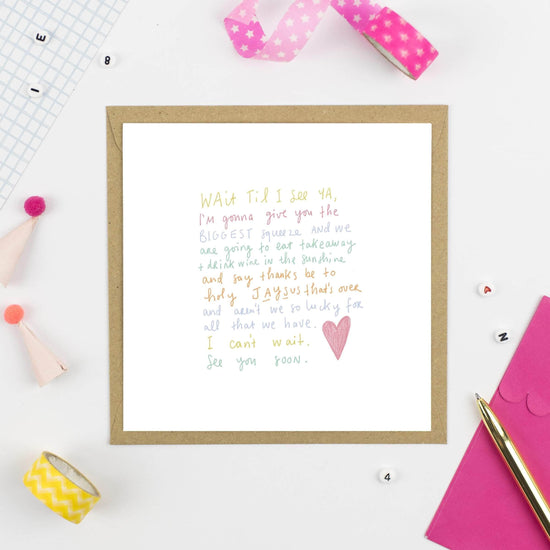 WAit Til I See YA,
I'm gonna give you the
BIGGEST squeeze AND we
are going to eat takeaway
+ drink wine in the sunshine
and say thanks be to
holy JAYSUS that's over
and aren't we so lucky for
all that we have.
I can't wait.
See you soon.
E
8
I
A
N
4